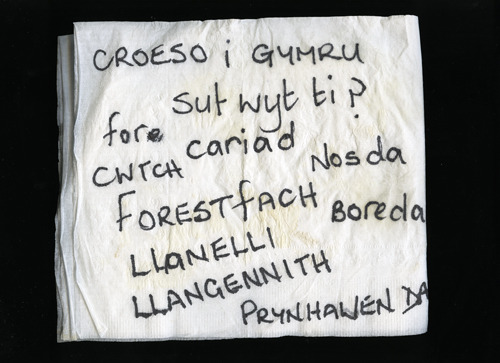 CROESO i GYMRU
sut wyt ti?
fore cariad
CWTCH Nosda
FORESTFACH Boreda
LLANELLI
LLANGENNITH
PRYNHAWEN DA